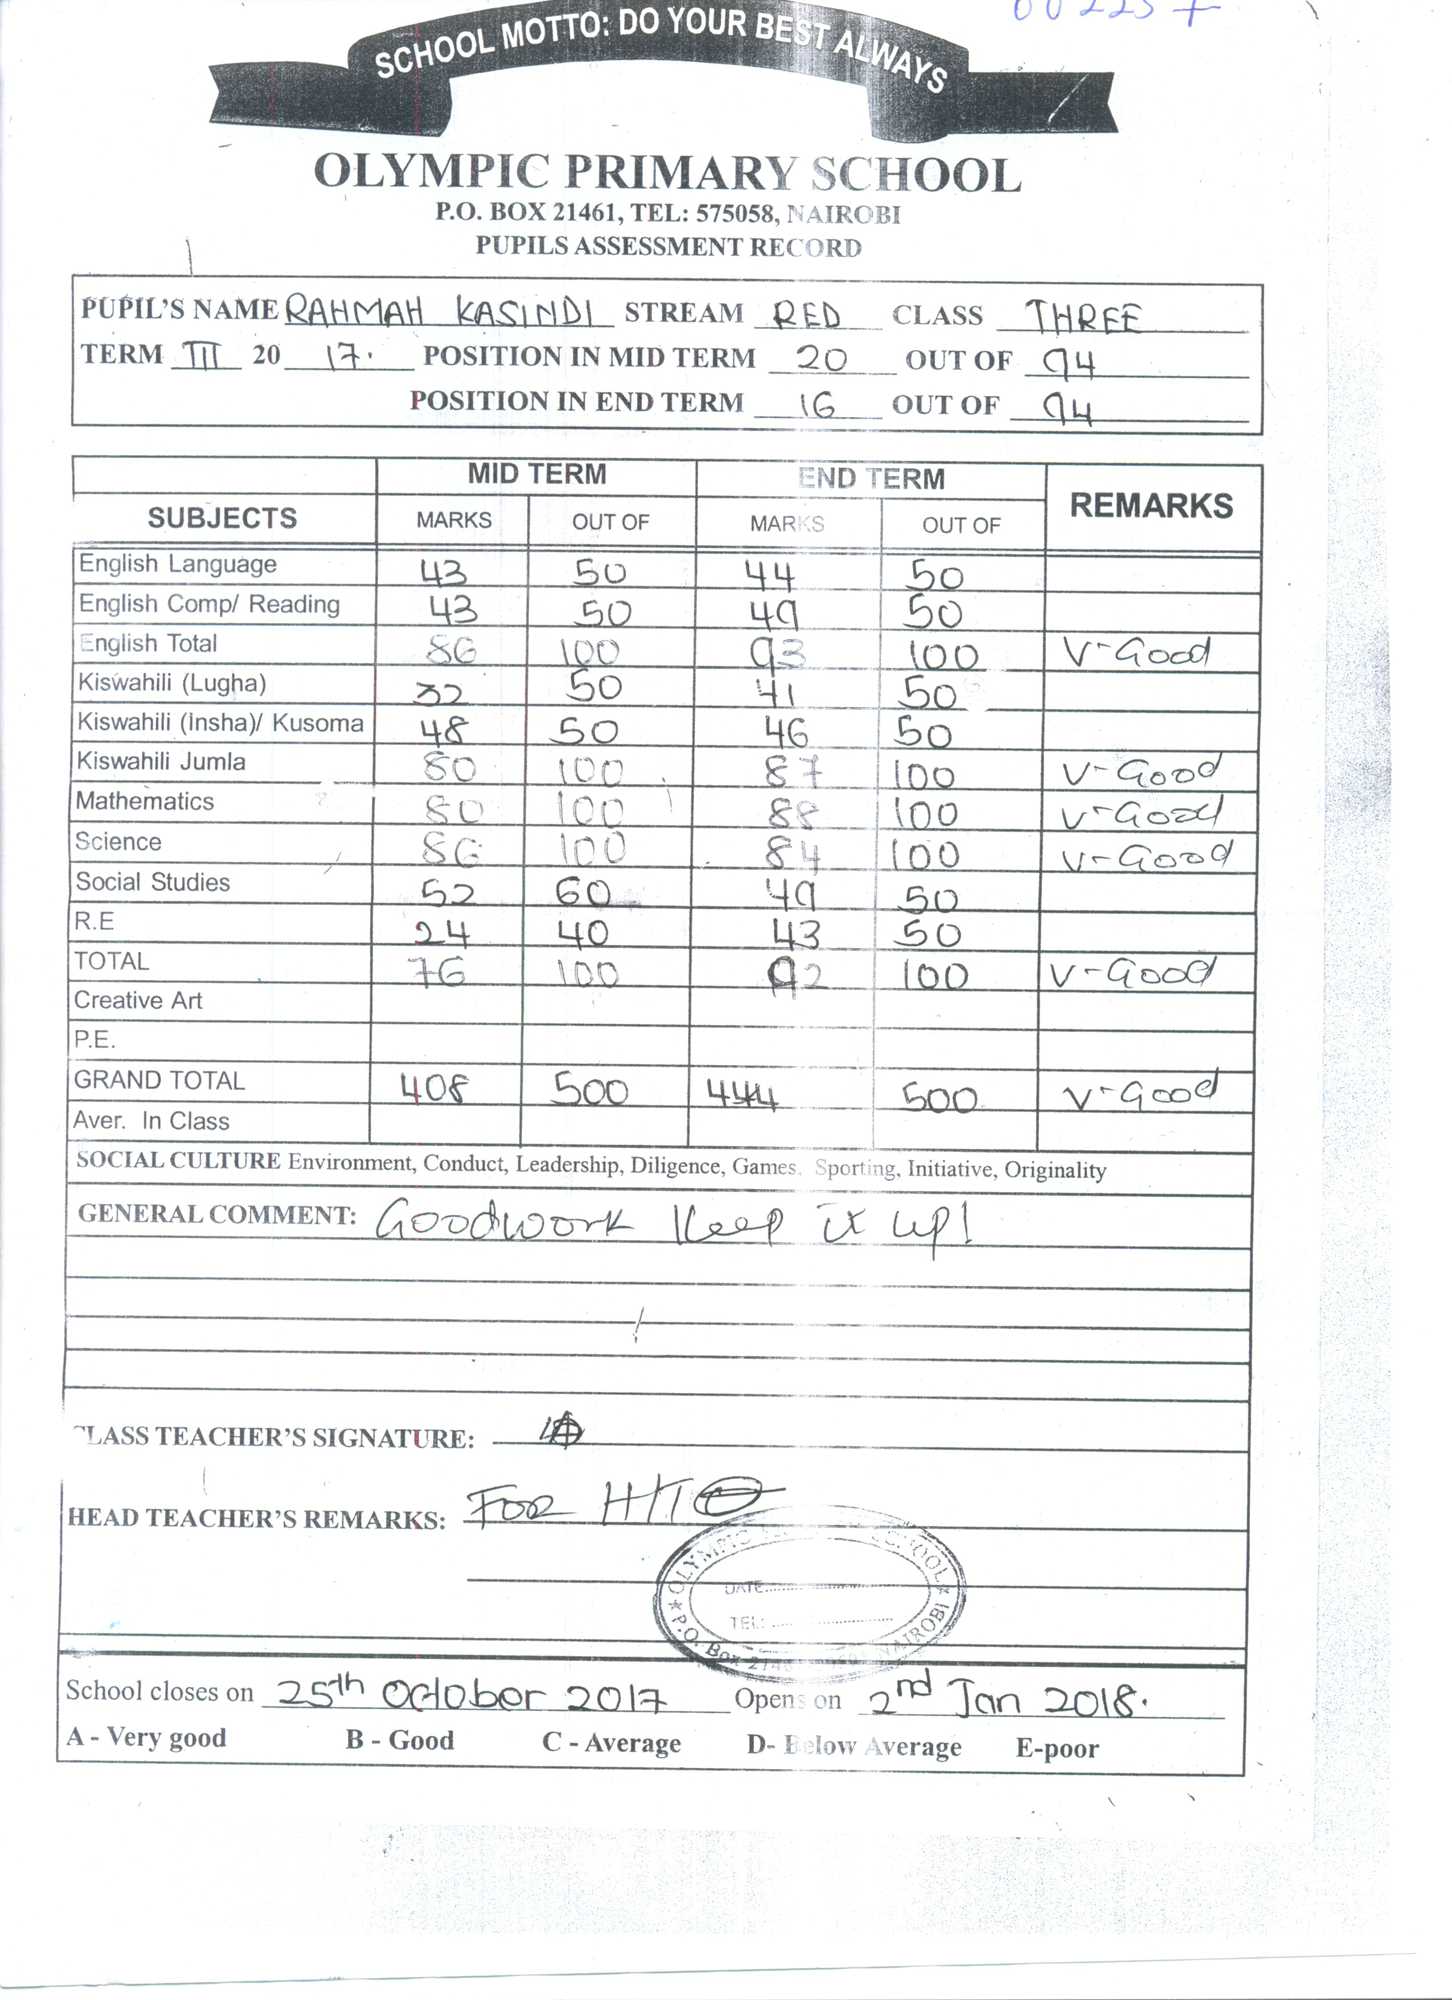 SCHOOL MOTTO: DO YOUR BEST ALWAYS
OLYMPIC PRIMARY SCHOOL
P.O. BOX 21461, TEL: 575058, NAIROBI
PUPILS ASSESSMENT RECORD
PUPIL'S NAME RAHMAH KASINDI STREAM RED CLASS THREE
TERM III 20 17. POSITION IN MID TERM 20 OUT OF 94
POSITION IN END TERM 16 OUT OF 94
MID TERM END TERM REMARKS
SUBJECTS MARKS OUT OF MARKS OUT OF
English Language 43 50 44 50
English Comp/ Reading 43 50 49 50
English Total 86 100 93 100 V-Good
Kiswahili (Lugha) 32 50 41 50
Kiswahili (Insha)/ Kusoma 48 50 46 50
Kiswahili Jumla 80 100 87 100 V-Good
Mathematics 80 100 88 100 V-Good
Science 86 100 84 100 V-Good
Social Studies 52 60 49 50
R.E 24 40 43 50
TOTAL 76 100 92 100 V-Good
Creative Art
P.E.
GRAND TOTAL 408 500 444 500 V-Good
Aver. In Class
SOCIAL CULTURE Environment, Conduct, Leadership, Diligence, Games, Sporting, Initiative, Originality
GENERAL COMMENT: Goodwork Keep it up!
CLASS TEACHER'S SIGNATURE:
HEAD TEACHER'S REMARKS: FOR H/T
OLYMPIC SCHOOL
DATE
TEL:
P.O. Box NAIROBI
School closes on 25th October 2017 Opens on 2nd Jan 2018.
A - Very good B - Good C - Average D- Below Average E-poor